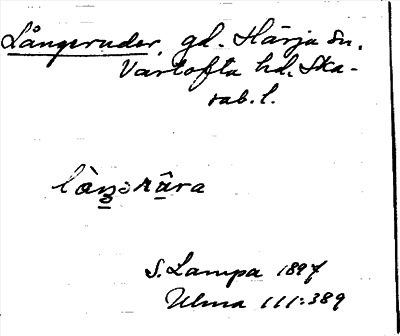 Långeruder, gd. Härja sn.
Vartofta hd. Ska-
rab. l.
lòŋərûra
S. Lampa 1897
Ulma 111:389